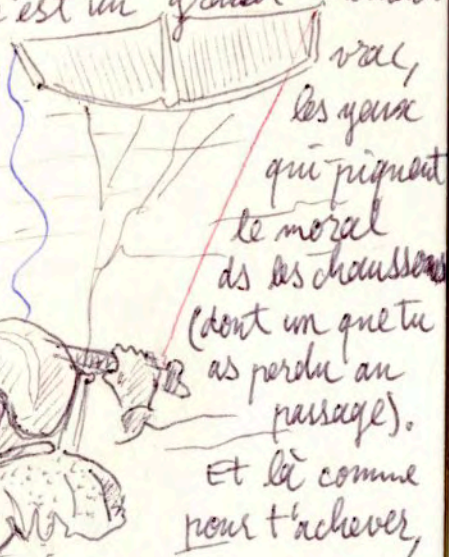 c'est un grand
vrac,
les yeux
qui piquent
le moral
ds les chaussons
(dont un que tu
as perdu au
passage).
Et là comme
pour t'achever,